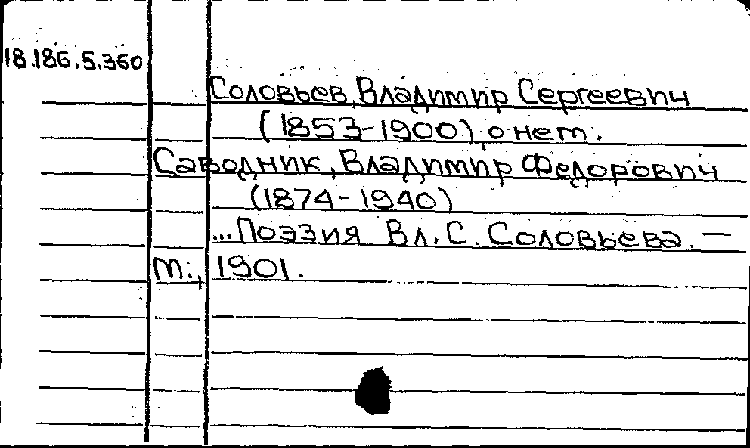 18.186.5.360
Соловьев, Владимир Сергеевич
(1853-1900), о нем.
Саводник, Владимир Федорович
(1874-1940)
...Поэзия Вл. С. Соловьева. —
М., 1901.